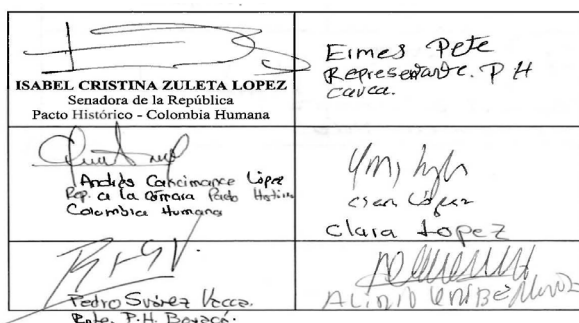 ISABEL CRISTINA ZULETA LOPEZ
Senadora de la República
Pacto Histórico - Colombia Humana
Eimes Pete
Representante. P H
Cauca.
Andrés Cancimance López
Rep. a la Cámara Pacto Histórico
Colombia Humana
Clara Lopez
Pedro Suárez Vacca.
Rpte. P.H. Boyacá.
ALIRIO URIBE MUÑOZ